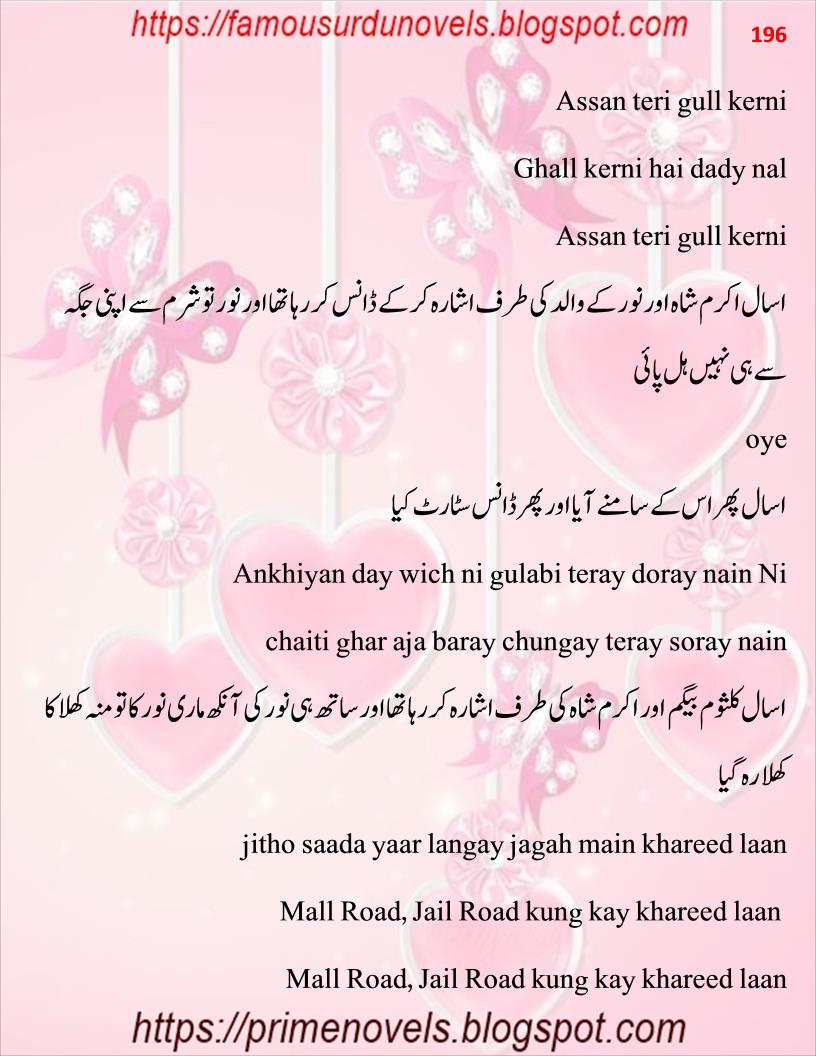 https://famousurdunovels.blogspot.com
196
Assan teri gull kerni
Ghall kerni hai dady nal
Assan teri gull kerni
اسال اکرم شاہ اور نور کے والد کی طرف اشارہ کر کے ڈانس کر رہا تھا اور نور تو شرم سے اپنی جگہ
سے ہی نہیں ہل پائی
oye
اسال پھر اس کے سامنے آیا اور پھر ڈانس سٹارٹ کیا
Ankhiyan day wich ni gulabi teray doray nain Ni
chaiti ghar aja baray chungay teray soray nain
اسال کلثوم بیگم اور اکرم شاہ کی طرف اشارہ کر رہا تھا اور ساتھ ہی نور کی آنکھ ماری نور کا تو منہ کھلا کا
کھلا رہ گیا
jitho saada yaar langay jagah main khareed laan
Mall Road, Jail Road kung kay khareed laan
Mall Road, Jail Road kung kay khareed laan
https://primenovels.blogspot.com